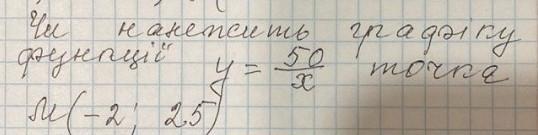 Чи належить графіку
функції y = 50/x точка
M(-2; 25)